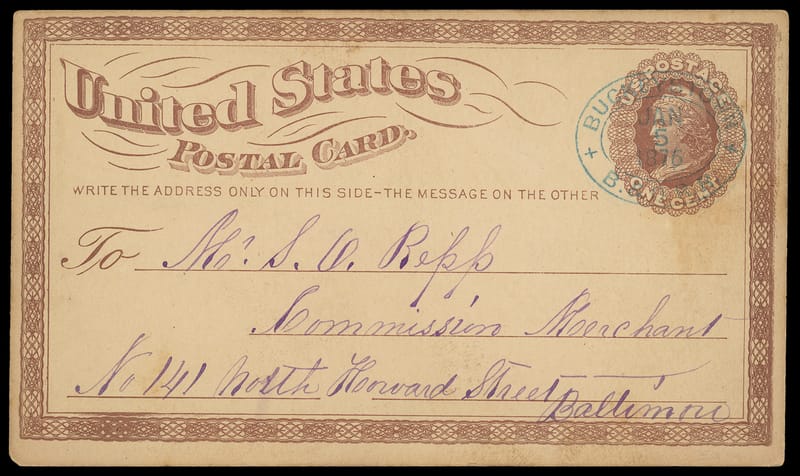 United States
POSTAL CARD.
WRITE THE ADDRESS ONLY ON THIS SIDE-THE MESSAGE ON THE OTHER
U.S. POSTAGE
ONE CENT
JAN
5
1876
To Mr. S. O. Repp
Commission Merchant
No 141 North Howard Street
Baltimore